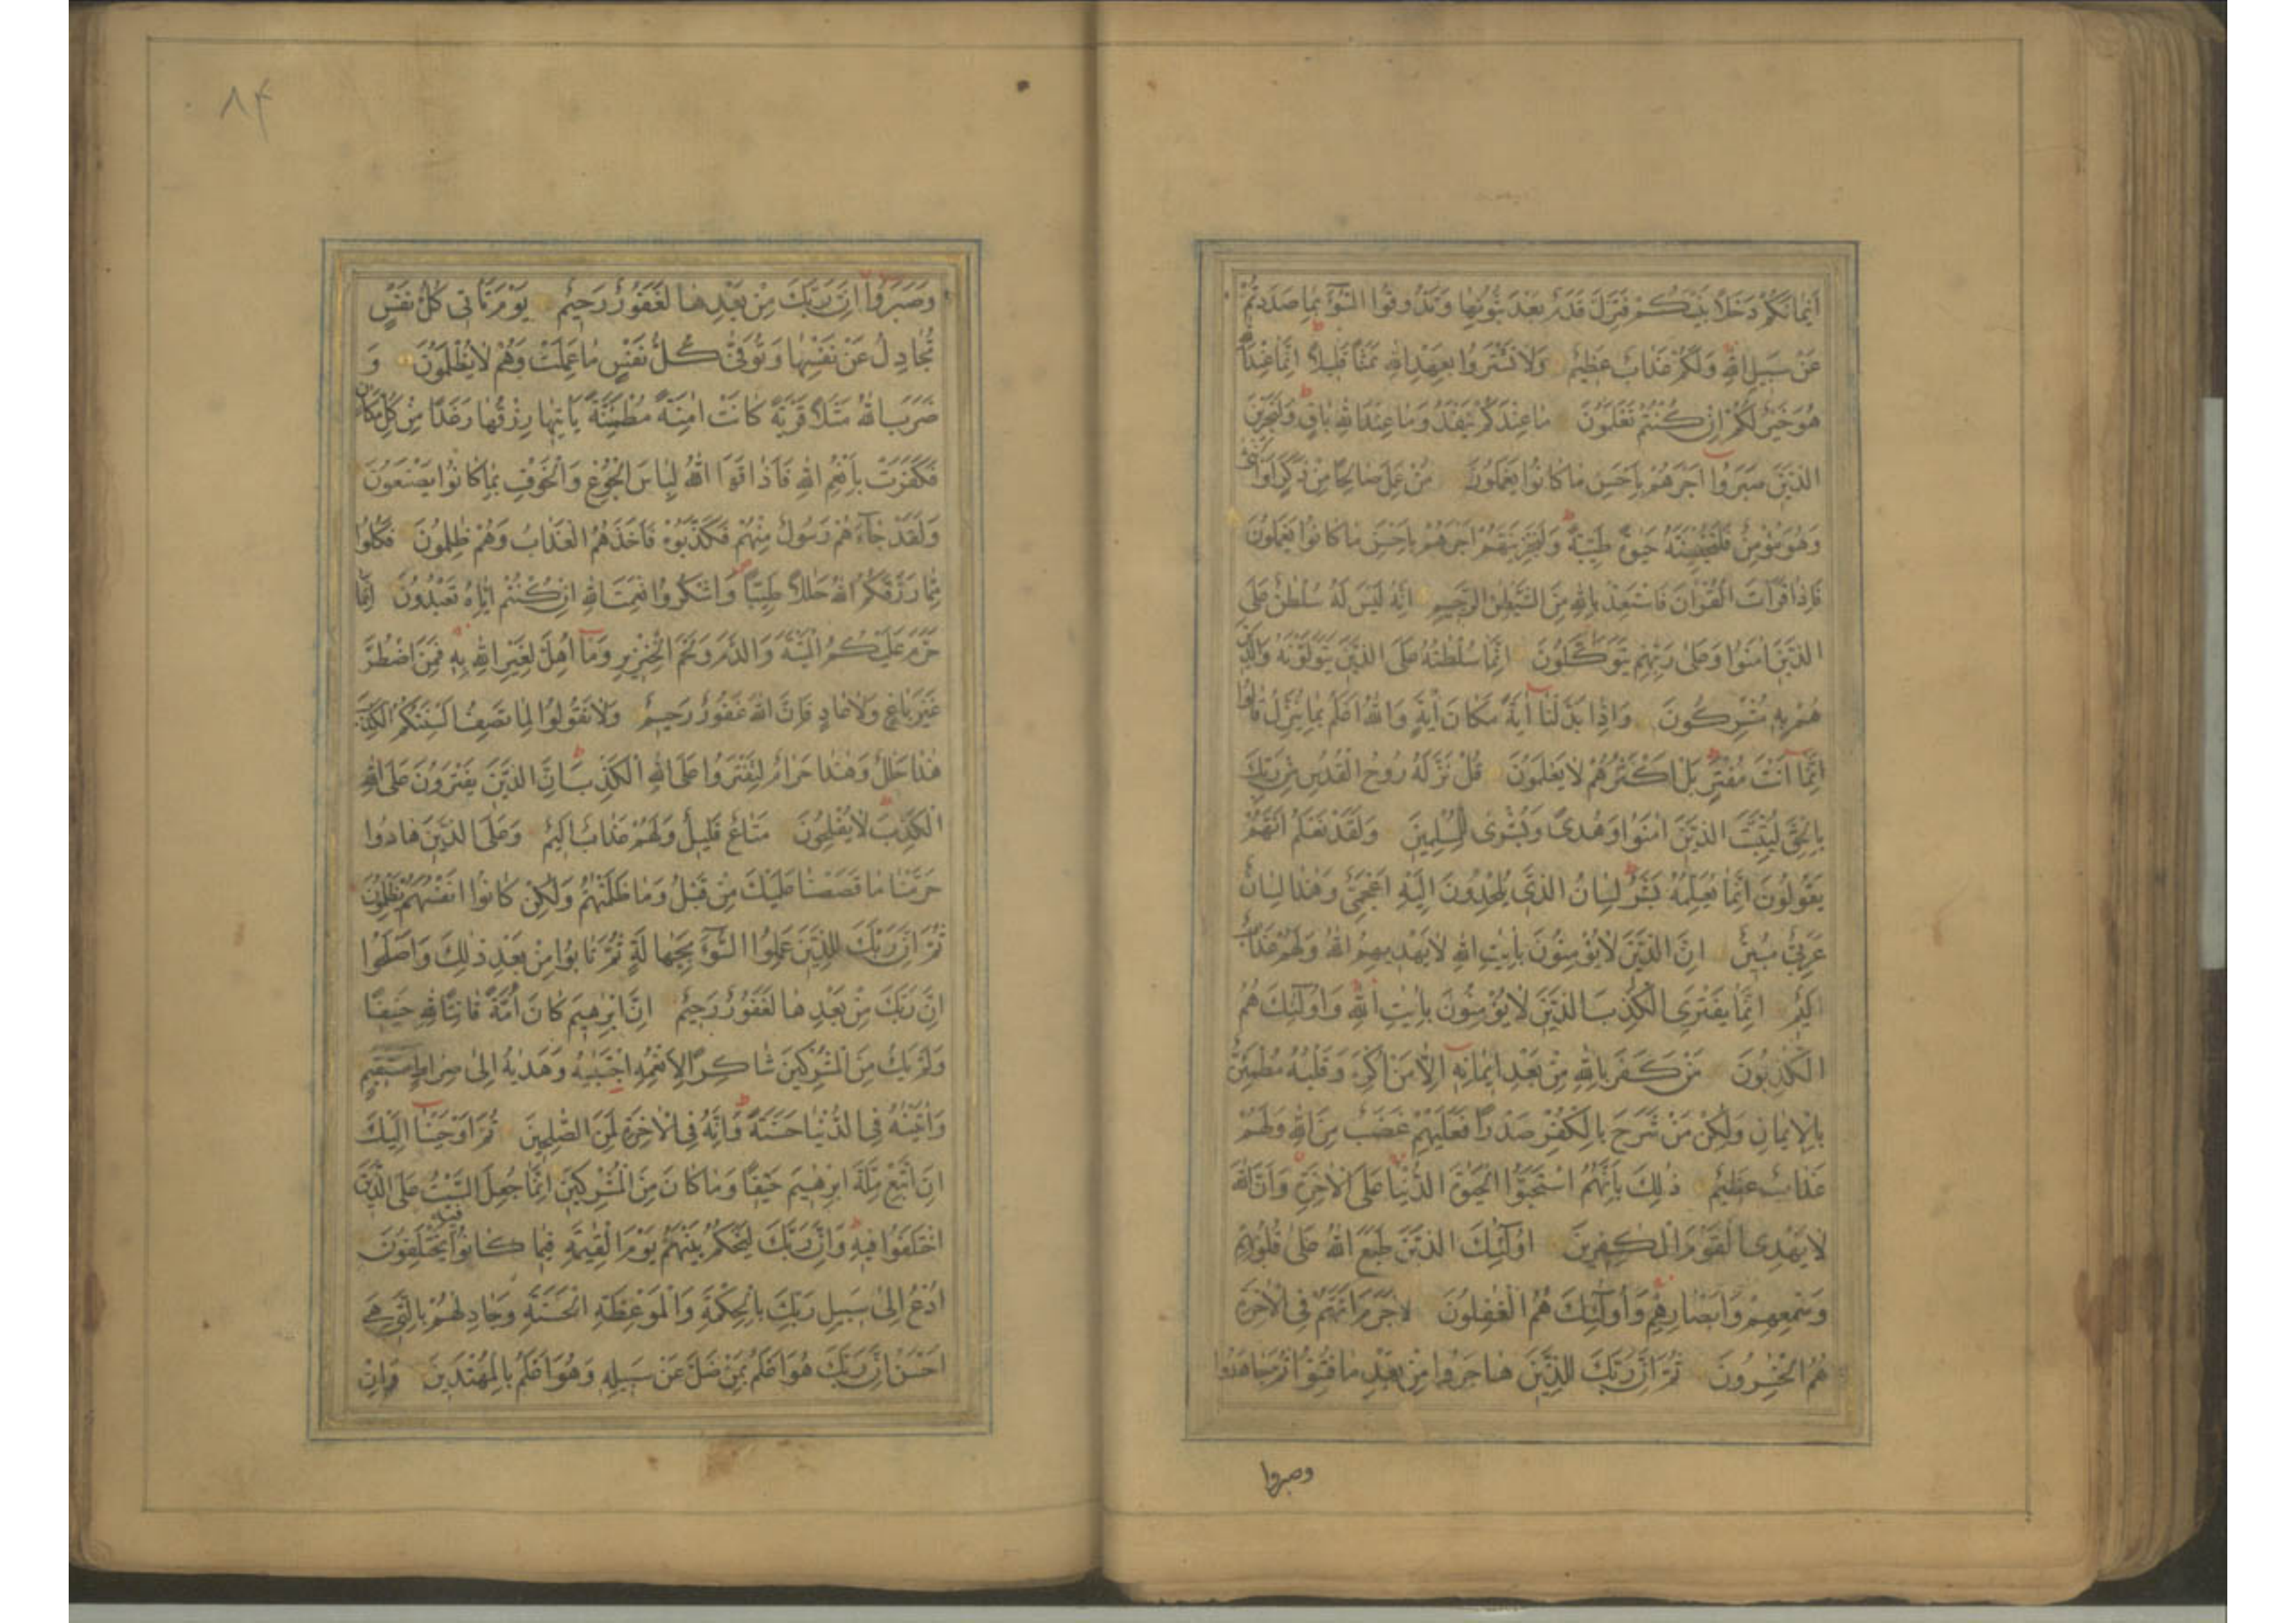 اَيْمَانَكُمْ دَخَلًا بَيْنَكُمْ فَتَزِلَّ قَدَمٌ بَعْدَ ثُبُوتِهَا وَتَذُوقُوا السُّوٓءَ بِمَا صَدَدْتُمْ
عَنْ سَبِيلِ اللهِ وَلَكُمْ عَذَابٌ عَظِيمٌ وَلَا تَشْتَرُوا بِعَهْدِ اللهِ ثَمَنًا قَلِيلًا اِنَّمَا عِنْدَ اللهِ
هُوَ خَيْرٌ لَكُمْ اِنْ كُنْتُمْ تَعْلَمُونَ مَا عِنْدَكُمْ يَنْفَدُ وَمَا عِنْدَ اللهِ بَاقٍ وَلَنَجْزِيَنَّ
الَّذِينَ صَبَرُوا اَجْرَهُمْ بِاَحْسَنِ مَا كَانُوا يَعْمَلُونَ مَنْ عَمِلَ صَالِحًا مِنْ ذَكَرٍ اَوْ اُنْثٰى
وَهُوَ مُؤْمِنٌ فَلَنُحْيِيَنَّهُ حَيٰوةً طَيِّبَةً وَلَنَجْزِيَنَّهُمْ اَجْرَهُمْ بِاَحْسَنِ مَا كَانُوا يَعْمَلُونَ
فَاِذَا قَرَأْتَ الْقُرْاٰنَ فَاسْتَعِذْ بِاللهِ مِنَ الشَّيْطٰنِ الرَّجِيمِ اِنَّهُ لَيْسَ لَهُ سُلْطٰنٌ عَلَى
الَّذِينَ اٰمَنُوا وَعَلٰى رَبِّهِمْ يَتَوَكَّلُونَ اِنَّمَا سُلْطٰنُهُ عَلَى الَّذِينَ يَتَوَلَّوْنَهُ وَالَّذِينَ
هُمْ بِهِ مُشْرِكُونَ وَاِذَا بَدَّلْنَا اٰيَةً مَكَانَ اٰيَةٍ وَاللهُ اَعْلَمُ بِمَا يُنَزِّلُ قَالُوا
اِنَّمَا اَنْتَ مُفْتَرٍ بَلْ اَكْثَرُهُمْ لَا يَعْلَمُونَ قُلْ نَزَّلَهُ رُوحُ الْقُدُسِ مِنْ رَبِّكَ
بِالْحَقِّ لِيُثَبِّتَ الَّذِينَ اٰمَنُوا وَهُدًى وَبُشْرٰى لِلْمُسْلِمِينَ وَلَقَدْ نَعْلَمُ اَنَّهُمْ
يَقُولُونَ اِنَّمَا يُعَلِّمُهُ بَشَرٌ لِسَانُ الَّذِي يُلْحِدُونَ اِلَيْهِ اَعْجَمِيٌّ وَهٰذَا لِسَانٌ
عَرَبِيٌّ مُبِينٌ اِنَّ الَّذِينَ لَا يُؤْمِنُونَ بِاٰيٰتِ اللهِ لَا يَهْدِيهِمُ اللهُ وَلَهُمْ عَذَابٌ
اَلِيمٌ اِنَّمَا يَفْتَرِي الْكَذِبَ الَّذِينَ لَا يُؤْمِنُونَ بِاٰيٰتِ اللهِ وَاُولٰٓئِكَ هُمُ
الْكٰذِبُونَ مَنْ كَفَرَ بِاللهِ مِنْ بَعْدِ اِيمَانِهِ اِلَّا مَنْ اُكْرِهَ وَقَلْبُهُ مُطْمَئِنٌّ
بِالْاِيمَانِ وَلٰكِنْ مَنْ شَرَحَ بِالْكُفْرِ صَدْرًا فَعَلَيْهِمْ غَضَبٌ مِنَ اللهِ وَلَهُمْ
عَذَابٌ عَظِيمٌ ذٰلِكَ بِاَنَّهُمُ اسْتَحَبُّوا الْحَيٰوةَ الدُّنْيَا عَلَى الْاٰخِرَةِ وَاَنَّ اللهَ
لَا يَهْدِي الْقَوْمَ الْكٰفِرِينَ اُولٰٓئِكَ الَّذِينَ طَبَعَ اللهُ عَلٰى قُلُوبِهِمْ
وَسَمْعِهِمْ وَاَبْصَارِهِمْ وَاُولٰٓئِكَ هُمُ الْغٰفِلُونَ لَا جَرَمَ اَنَّهُمْ فِي الْاٰخِرَةِ
هُمُ الْخٰسِرُونَ ثُمَّ اِنَّ رَبَّكَ لِلَّذِينَ هَاجَرُوا مِنْ بَعْدِ مَا فُتِنُوا ثُمَّ جَاهَدُوا
وصبروا
۸۴
وَصَبَرُوا اِنَّ رَبَّكَ مِنْ بَعْدِهَا لَغَفُورٌ رَحِيمٌ يَوْمَ تَأْتِي كُلُّ نَفْسٍ
تُجَادِلُ عَنْ نَفْسِهَا وَتُوَفّٰى كُلُّ نَفْسٍ مَا عَمِلَتْ وَهُمْ لَا يُظْلَمُونَ وَ
ضَرَبَ اللهُ مَثَلًا قَرْيَةً كَانَتْ اٰمِنَةً مُطْمَئِنَّةً يَأْتِيهَا رِزْقُهَا رَغَدًا مِنْ كُلِّ مَكَانٍ
فَكَفَرَتْ بِاَنْعُمِ اللهِ فَاَذَاقَهَا اللهُ لِبَاسَ الْجُوعِ وَالْخَوْفِ بِمَا كَانُوا يَصْنَعُونَ
وَلَقَدْ جَآءَهُمْ رَسُولٌ مِنْهُمْ فَكَذَّبُوهُ فَاَخَذَهُمُ الْعَذَابُ وَهُمْ ظٰلِمُونَ فَكُلُوا
مِمَّا رَزَقَكُمُ اللهُ حَلٰلًا طَيِّبًا وَاشْكُرُوا نِعْمَتَ اللهِ اِنْ كُنْتُمْ اِيَّاهُ تَعْبُدُونَ اِنَّمَا
حَرَّمَ عَلَيْكُمُ الْمَيْتَةَ وَالدَّمَ وَلَحْمَ الْخِنْزِيرِ وَمَا اُهِلَّ لِغَيْرِ اللهِ بِهِ فَمَنِ اضْطُرَّ
غَيْرَ بَاغٍ وَلَا عَادٍ فَاِنَّ اللهَ غَفُورٌ رَحِيمٌ وَلَا تَقُولُوا لِمَا تَصِفُ اَلْسِنَتُكُمُ الْكَذِبَ
هٰذَا حَلٰلٌ وَهٰذَا حَرَامٌ لِتَفْتَرُوا عَلَى اللهِ الْكَذِبَ اِنَّ الَّذِينَ يَفْتَرُونَ عَلَى اللهِ
الْكَذِبَ لَا يُفْلِحُونَ مَتَاعٌ قَلِيلٌ وَلَهُمْ عَذَابٌ اَلِيمٌ وَعَلَى الَّذِينَ هَادُوا
حَرَّمْنَا مَا قَصَصْنَا عَلَيْكَ مِنْ قَبْلُ وَمَا ظَلَمْنٰهُمْ وَلٰكِنْ كَانُوا اَنْفُسَهُمْ يَظْلِمُونَ
ثُمَّ اِنَّ رَبَّكَ لِلَّذِينَ عَمِلُوا السُّوٓءَ بِجَهَالَةٍ ثُمَّ تَابُوا مِنْ بَعْدِ ذٰلِكَ وَاَصْلَحُوا
اِنَّ رَبَّكَ مِنْ بَعْدِهَا لَغَفُورٌ رَحِيمٌ اِنَّ اِبْرٰهِيمَ كَانَ اُمَّةً قَانِتًا لِلّٰهِ حَنِيفًا
وَلَمْ يَكُ مِنَ الْمُشْرِكِينَ شَاكِرًا لِاَنْعُمِهِ اِجْتَبٰيهُ وَهَدٰيهُ اِلٰى صِرَاطٍ مُسْتَقِيمٍ
وَاٰتَيْنٰهُ فِي الدُّنْيَا حَسَنَةً وَاِنَّهُ فِي الْاٰخِرَةِ لَمِنَ الصّٰلِحِينَ ثُمَّ اَوْحَيْنَا اِلَيْكَ
اَنِ اتَّبِعْ مِلَّةَ اِبْرٰهِيمَ حَنِيفًا وَمَا كَانَ مِنَ الْمُشْرِكِينَ اِنَّمَا جُعِلَ السَّبْتُ عَلَى الَّذِينَ
اخْتَلَفُوا فِيهِ وَاِنَّ رَبَّكَ لَيَحْكُمُ بَيْنَهُمْ يَوْمَ الْقِيٰمَةِ فِيمَا كَانُوا فِيهِ يَخْتَلِفُونَ
اُدْعُ اِلٰى سَبِيلِ رَبِّكَ بِالْحِكْمَةِ وَالْمَوْعِظَةِ الْحَسَنَةِ وَجَادِلْهُمْ بِالَّتِي هِيَ
اَحْسَنُ اِنَّ رَبَّكَ هُوَ اَعْلَمُ بِمَنْ ضَلَّ عَنْ سَبِيلِهِ وَهُوَ اَعْلَمُ بِالْمُهْتَدِينَ وَاِنْ